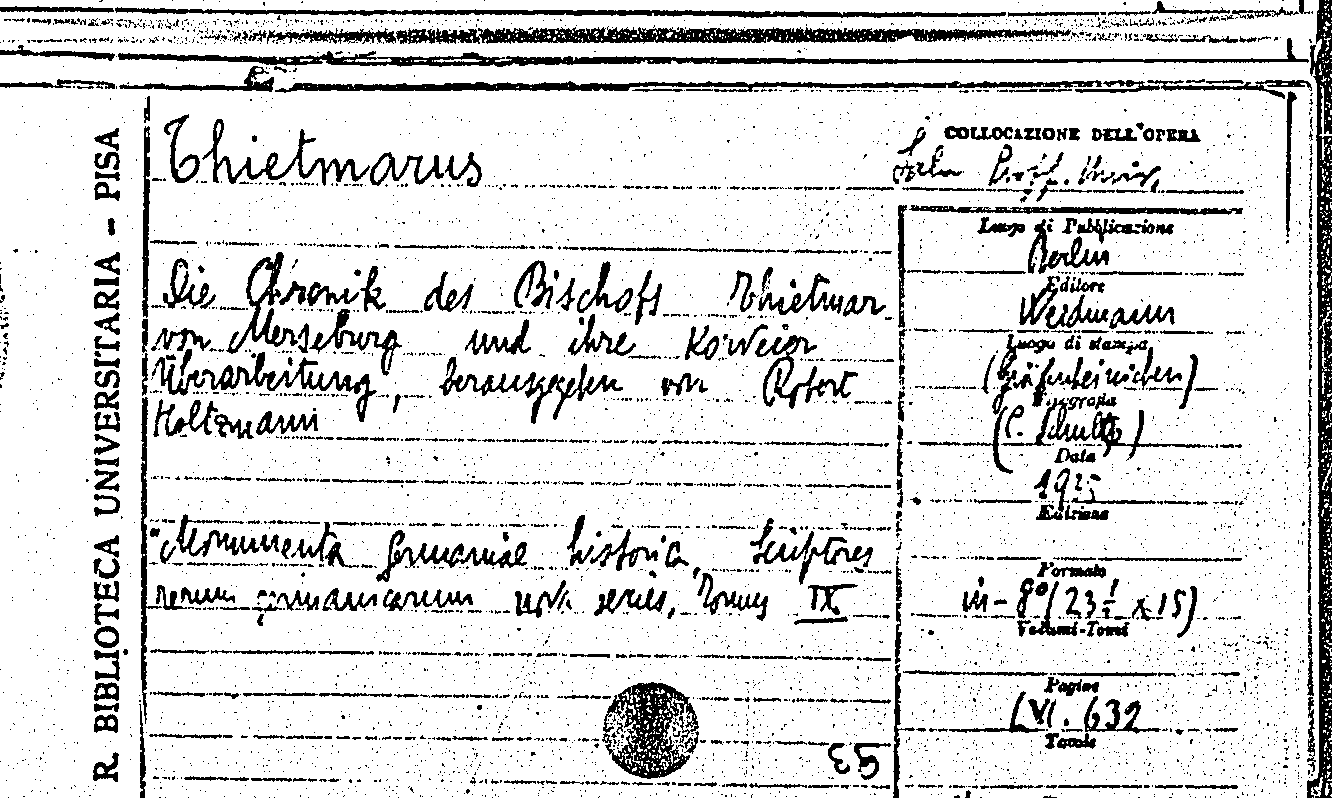 R. BIBLIOTECA UNIVERSITARIA - PISA
Thietmarus
COLLOCAZIONE DELL'OPERA
Die Chronik des Bischofs Thietmar
von Merseburg und ihre Korveier
Überarbeitung, herausgegeben von Robert
Holtzmann
"Monumenta Germaniae historica, Scriptores
rerum germanicarum nova series, Tomus IX
Luogo di Pubblicazione
Berlin
Editore
Weidmann
Luogo di stampa
(Gräfenhainichen)
Tipografia
(C. Schulze)
Data
1935
Edizione
Formato
in-8° (23½ x 15)
Volumi-Tomi
Pagine
LVI. 632
Tavole